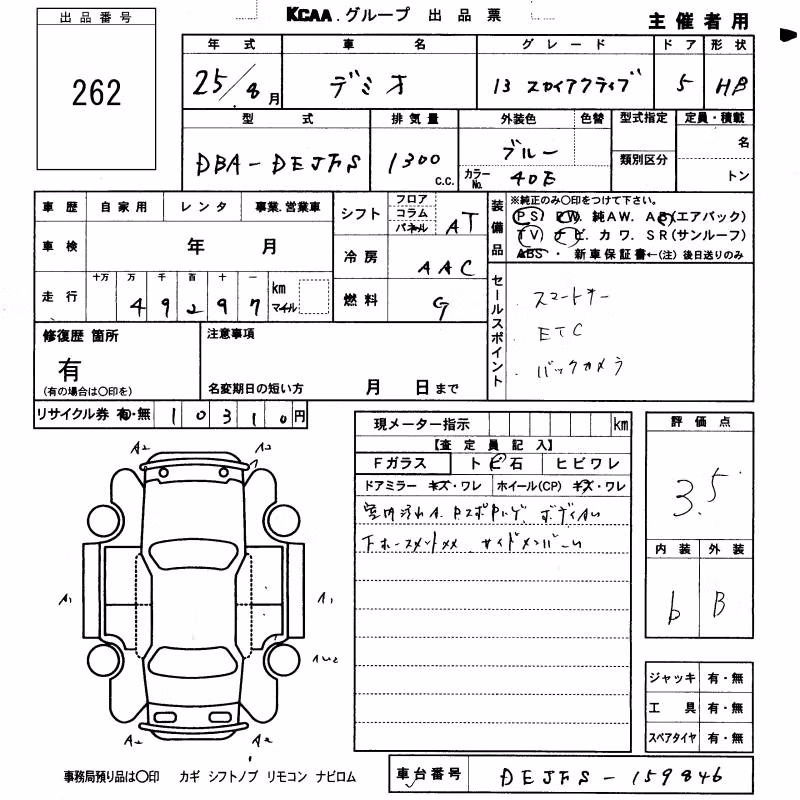 出品番号
262
KCAA.グループ 出品票
主催者用
年式 車名 グレード ドア 形状
25/8月 デミオ 13 スカイアクティブ 5 HB
型式 排気量 外装色 色替 型式指定 定員・積載
DBA-DEJFS 1300 c.c. ブルー 名
類別区分
カラーNo. 40E トン
車歴 自家用 レンタ 事業.営業車
車検 年 月
走行 十万 万 千 百 十 一 km マイル
49297
シフト フロア コラム パネル AT
冷房 AAC
燃料 G
装備品 ※純正のみ〇印をつけて下さい。
PS. PW. 純AW. AB(エアバック)
TV. ナビ. カワ. SR(サンルーフ)
ABS・新車保証書←(注)後日送りのみ
セールスポイント
スマートキー
ETC
バックカメラ
修復歴 箇所
有
(有の場合は〇印を)
注意事項
名変期日の短い方 月 日まで
リサイクル券 有・無 10310円
現メーター指示 km
【査定員記入】
Fガラス トビ石 ヒビワレ
ドアミラー キズ・ワレ ホイール(CP) キズ・ワレ
室内汚れ
評価点
3.5
内装 外装
b B
A2
A1 A1
A2 A2
ジャッキ 有・無
工具 有・無
スペアタイヤ 有・無
事務局預り品は〇印 カギ シフトノブ リモコン ナビロム
車台番号 DEJFS-159846